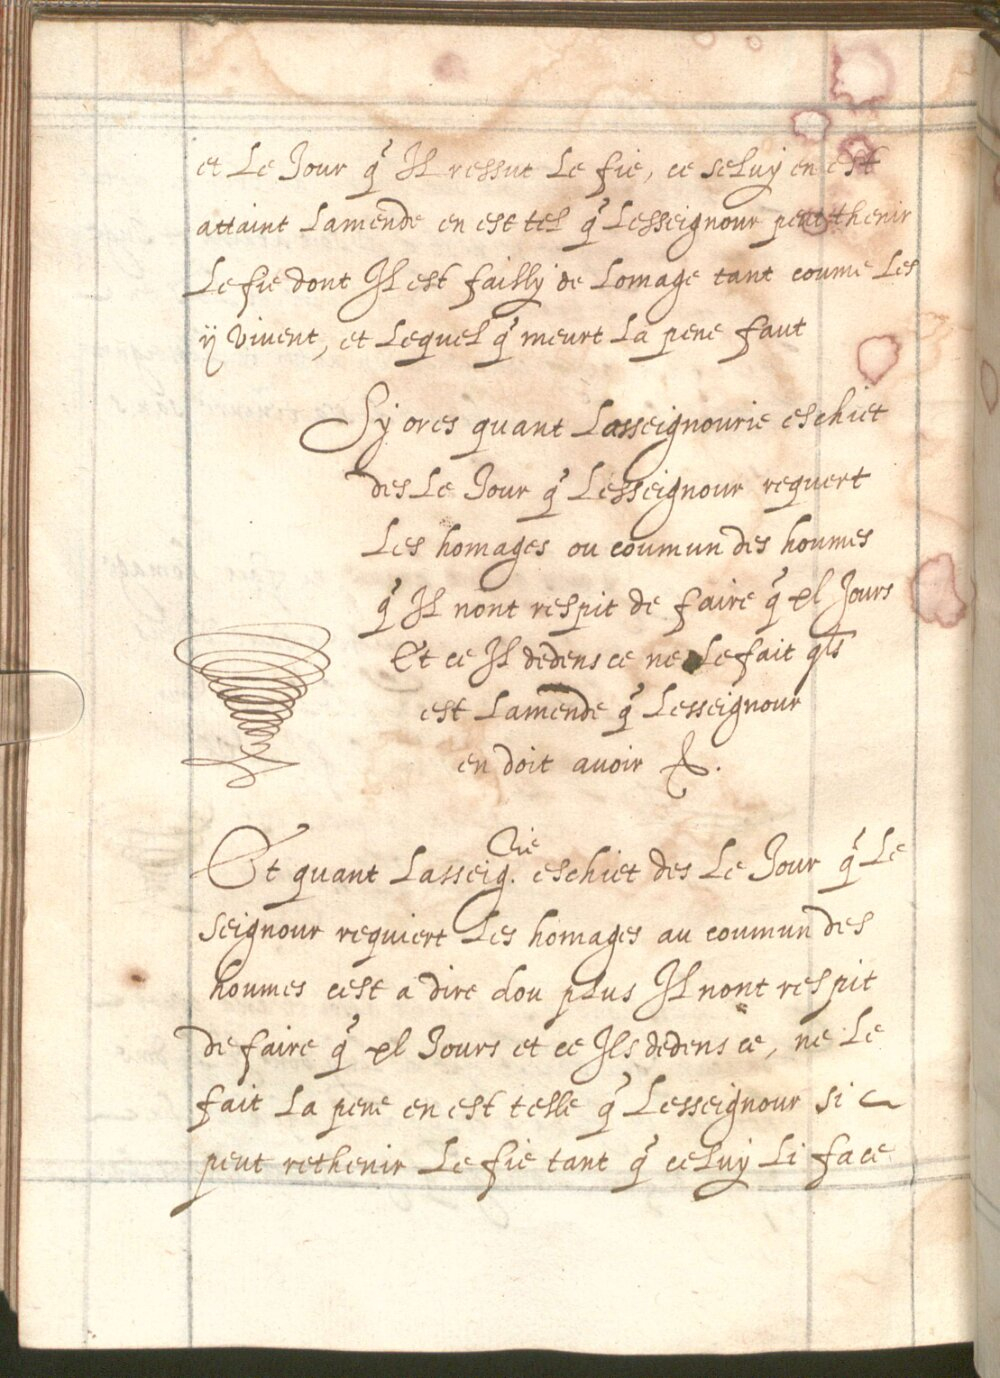 et Le Jour q̃ Il ressut Le fie, ce seluy en est
attaint Lamende en est tel q̃ Lesseignour peut thenir
Le fie dont Il est failly de Lomage tant coume Les
ÿ vivent, et Lequel q̃ meurt La pene faut
Sy ores quant Lasseignourie eschiet
des Le Jour q̃ Lesseignour requert
Les homages ou coumun des houmes
q̃ Il nont respit de faire q̃ xl Jours
Et ce Il dedens ce ne Le fait qls
est Lamende q̃ Lesseignour
en doit avoir &.
Et quant Lasseig.rie eschiet des Le Jour q̃ Le
seignour requiert Les homages au coumun des
houmes cest a dire dou plus Il nont respit
de faire q̃ xl Jours et ce Ils dedens ce, ne Le
fait La pene en est telle q̃ Lesseignour si
peut rethenir Le fie tant q̃ celuy Li face